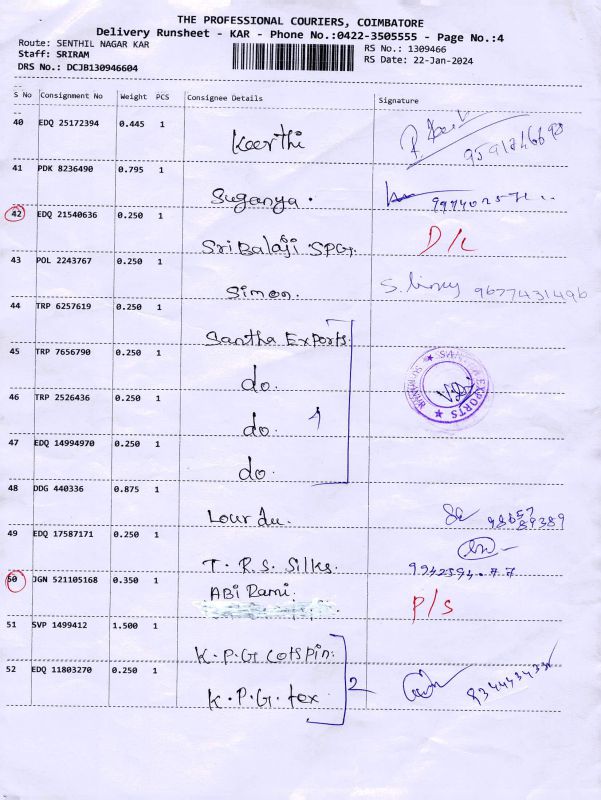 THE PROFESSIONAL COURIERS, COIMBATORE
Delivery Runsheet - KAR - Phone No.:0422-3505555 - Page No.:4
Route: SENTHIL NAGAR KAR
RS No.: 1309466
Staff: SRIRAM
RS Date: 22-Jan-2024
DRS No.: DCJB130946604
S No Consignment No Weight PCS Consignee Details Signature
40 EDQ 25172394 0.445 1
Keerthi
41 PDK 8236490 0.795 1
Suganya.
42 EDQ 21540636 0.250 1
Sri Balaji SPG. D/L
43 POL 2243767 0.250 1
Simon. 9677431496
44 TRP 6257619 0.250 1
Santha Exports.
45 TRP 7656790 0.250 1
do.
46 TRP 2526436 0.250 1
do.
EXPORTS
47 EDQ 14994970 0.250 1
do.
48 DDG 440336 0.875 1
Lourdu.
49 EDQ 17587171 0.250 1
T. R. S. Silks.
50 JGN 521105168 0.350 1
ABi Rami. P/S
51 SVP 1499412 1.500 1
K.P.G cotspin.
52 EDQ 11803270 0.250 1
2
K.P.G. tex